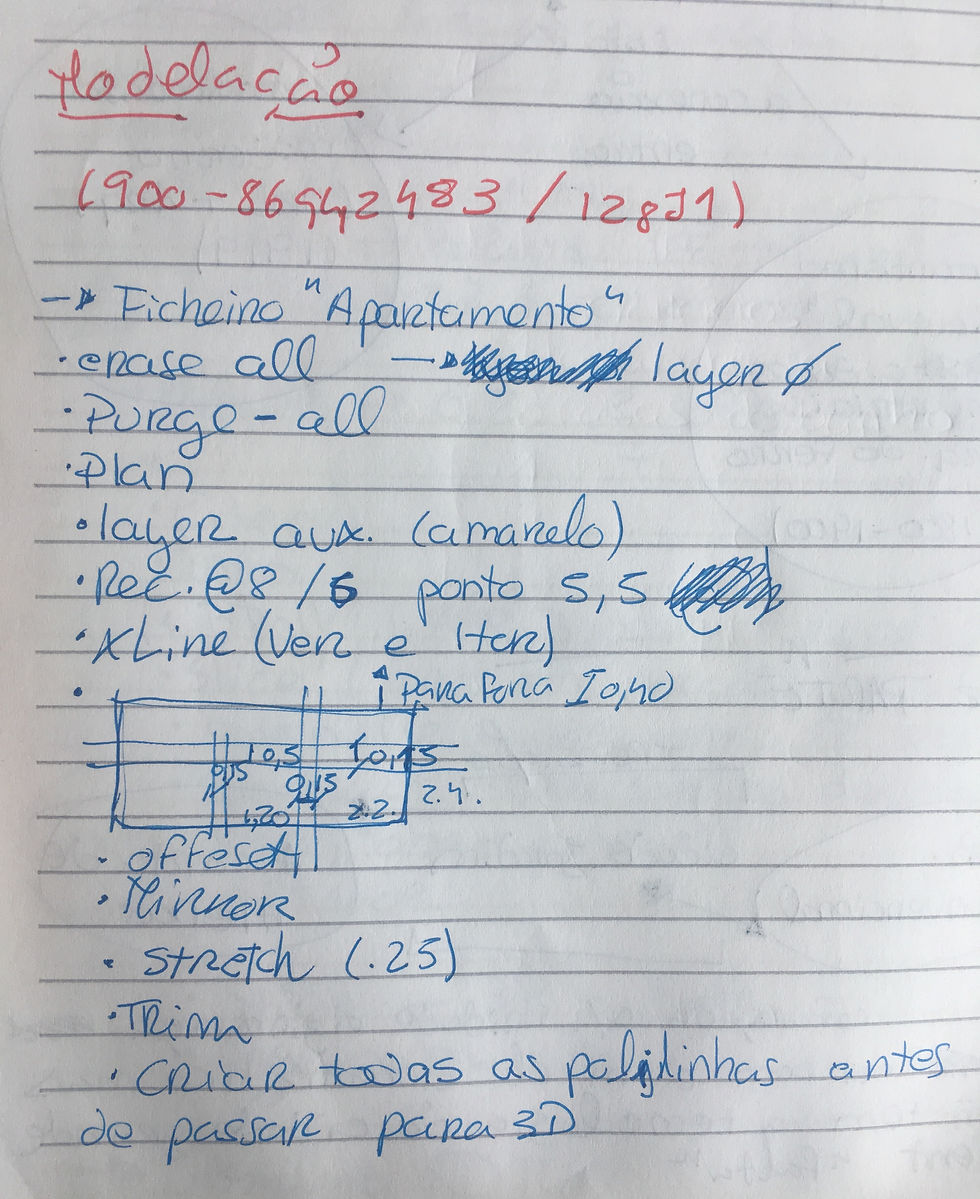 Modelação
(900-86942483 / 128J1)
→ Ficheiro "Apartamento"
· erase all → layer ø
· Purge - all
· Plan
· layer aux. (amarelo)
· Rec. @8 / 6 ponto 5,5
· XLine (Ver e Hor)
· Para Fora I 0,40
0,5 I 0,15
0,15 0,15 2.4.
1,20 2.2.
· offeset
· Mirror
· Stretch (.25)
· Trim
· Criar todas as polylinhas antes
de passar para 3D